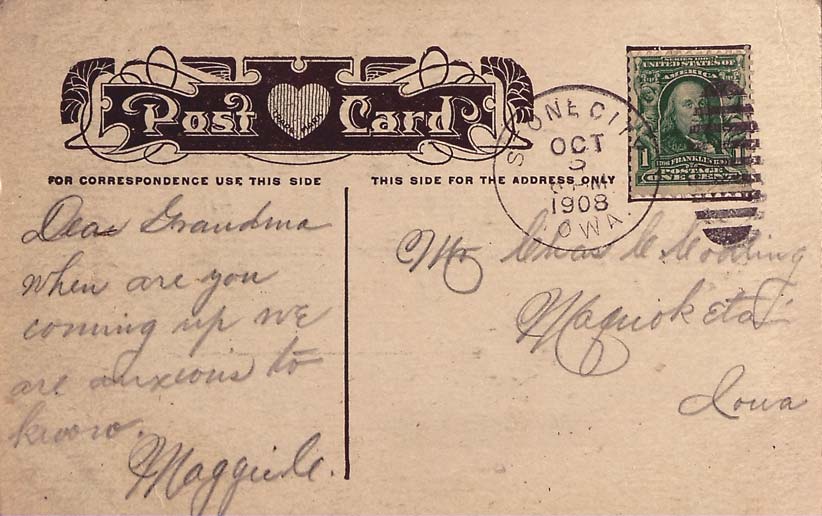 Post Card
FOR CORRESPONDENCE USE THIS SIDE
THIS SIDE FOR THE ADDRESS ONLY
STONE CITY
OCT
1908
IOWA.
SERIES 1902
UNITED STATES OF
AMERICA
1706 FRANKLIN 1790
POSTAGE
1 ONE CENT 1
Dear Grandma
when are you
coming up we
are anxeous to
know.
Maggie
Mr Chas C
Maquoketa
Iowa